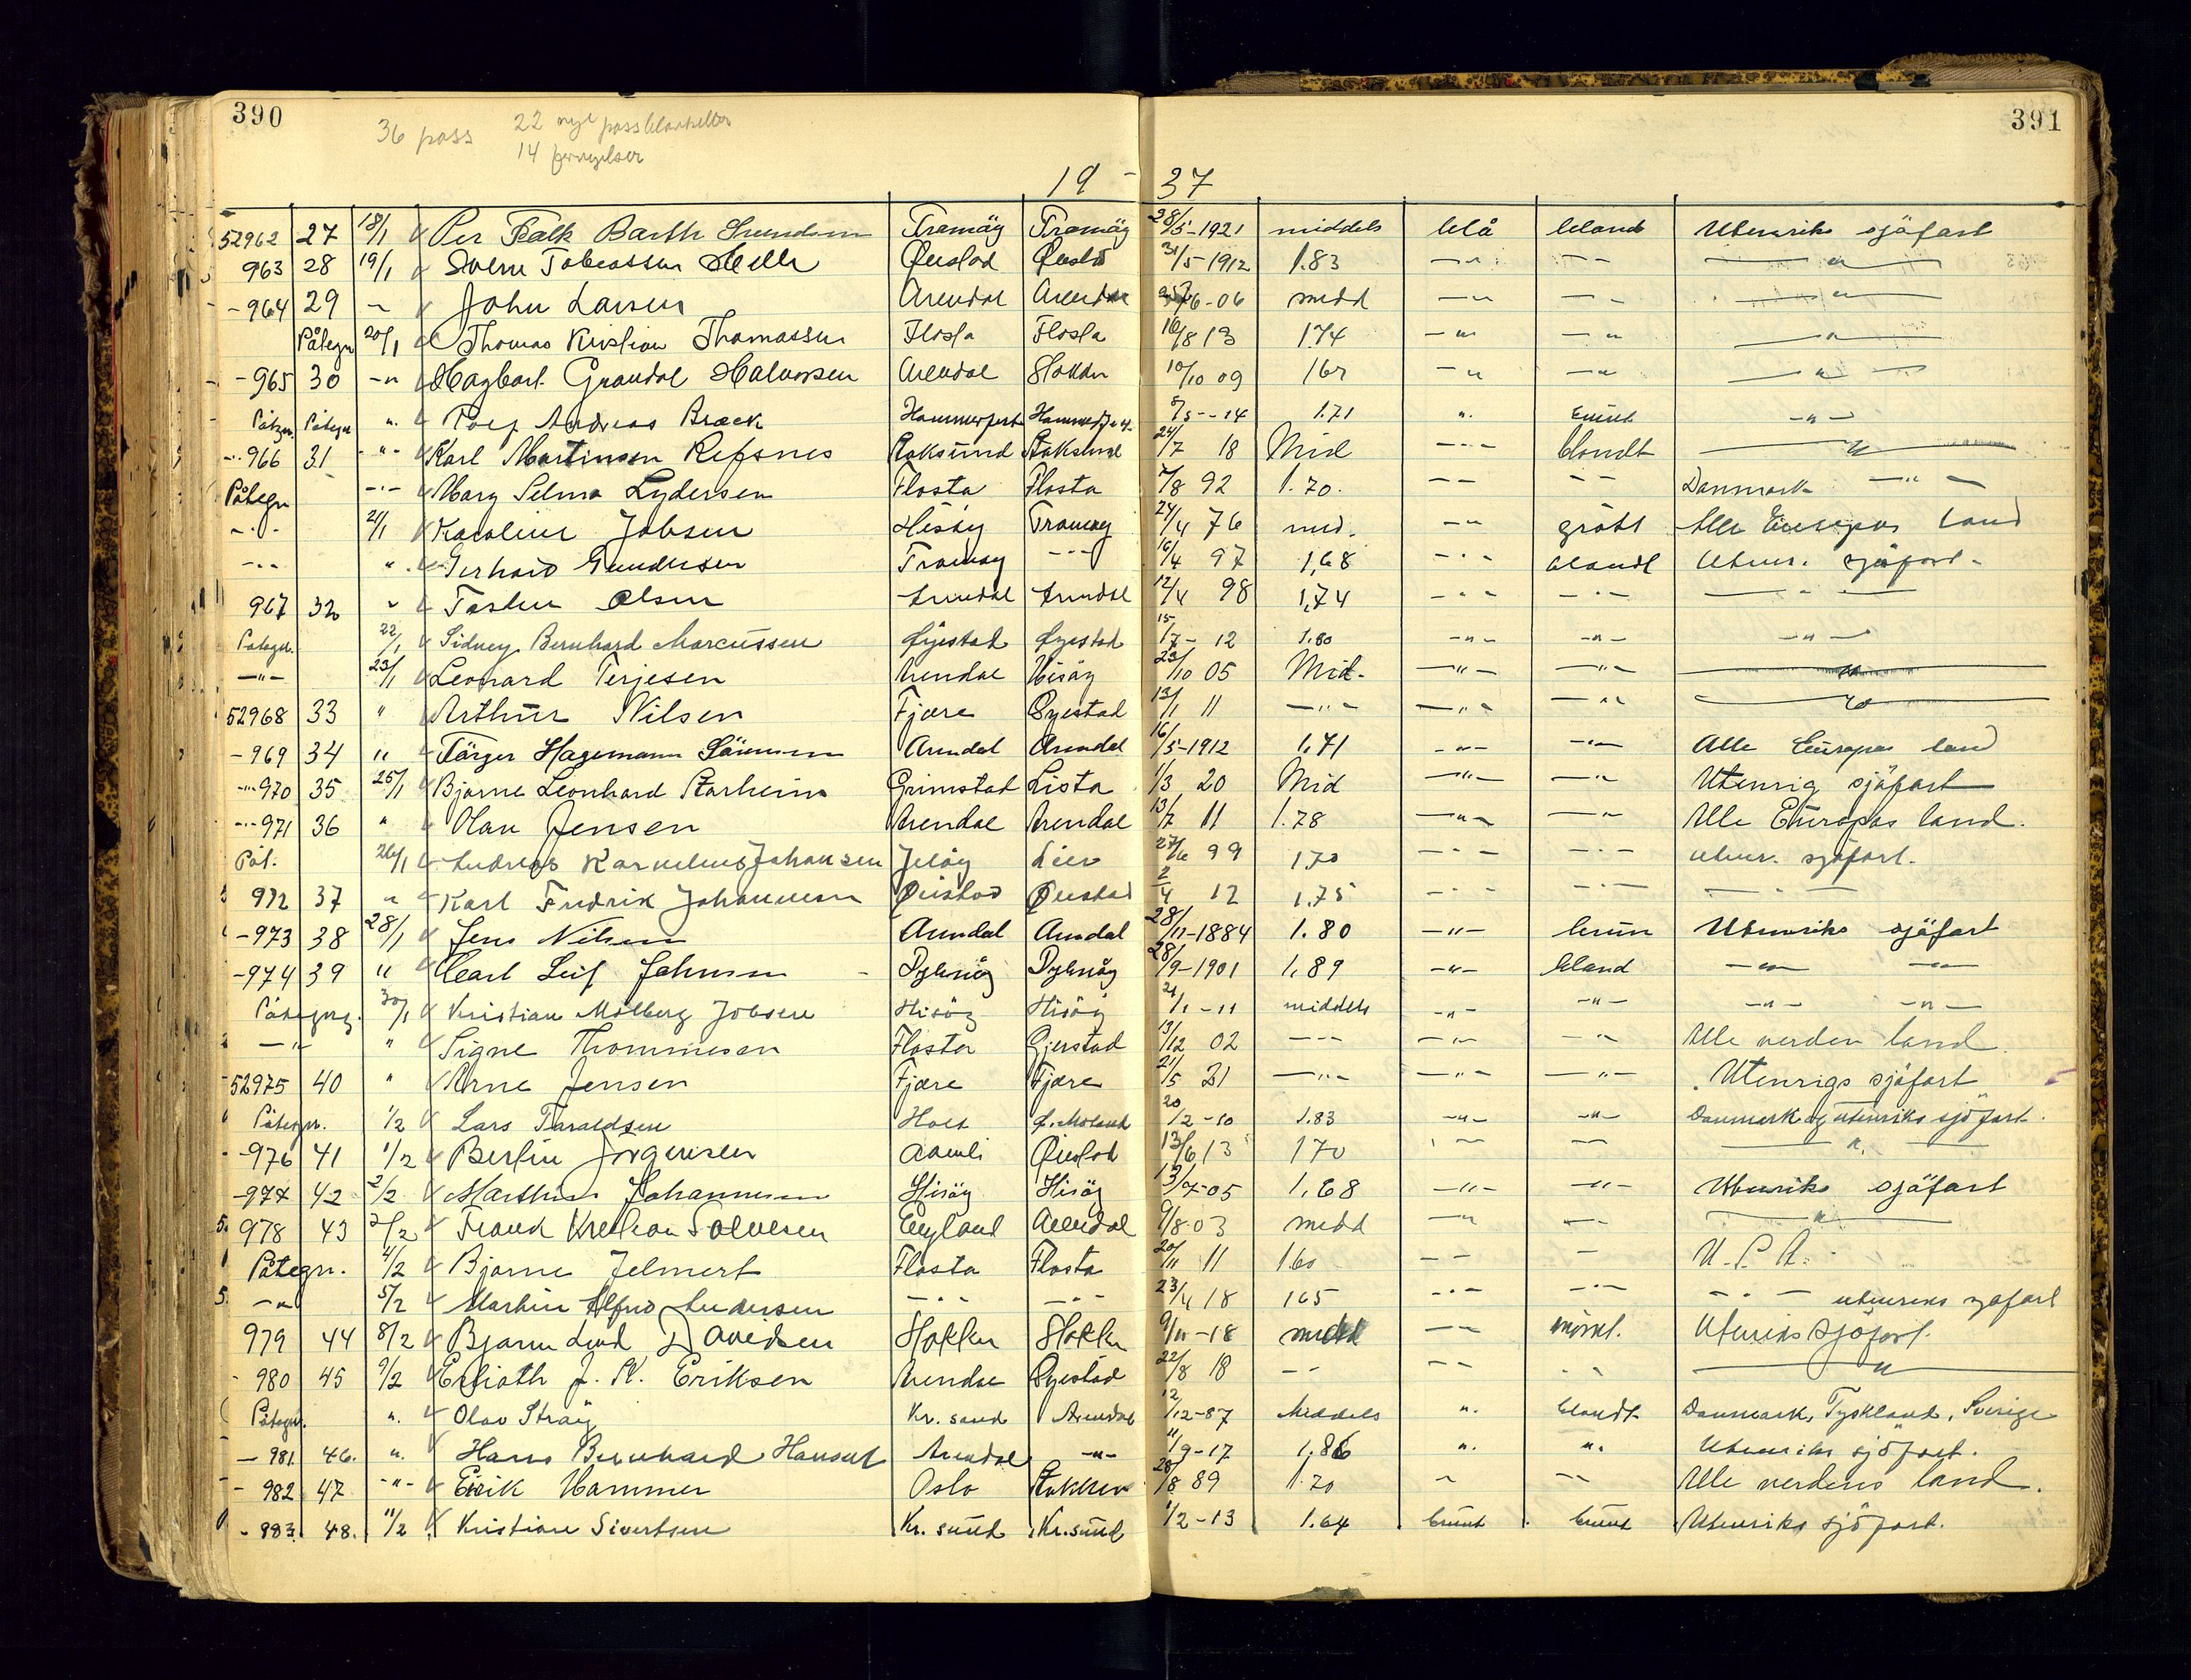 390
391
36 pass 22 nye passblanketter
14 fornyelser
19 - 37
52962 27 18/1 Per Falk Barth Svendsen Tromöy Tromöy 28/5-1921 middels blå blond Utenriks sjöfart
963 28 19/1 Tobiassen Helle Öiestad Öiestad 31/5-1912 1.83 -"- -"- -"-
-964 29 -"- John Larsen Arendal Arendal 6-06 medd -"- -"- -"-
Påtegn 20/1 Thomas Kristian Thomassen Flosta Flosta 16/8 13 1.74 -"- -"- -"-
-965 30 -"- Hagbart Grandal Halvorsen Arendal Stokken 10/10 09 167 -"- -"- -"-
Påtegn. Påtegn ". Andreas Braek Hammerfest Hammerfest 5/5--14 1.71 ". brunt -"-
-"-966 31 -"- Karl Martinsen Refsnes Stoksund Stoksund 24/7 18 Mid -"- blondt -"-
Påtegn -"- Mary Selma Lydersen Flosta Flosta 7/8 92 1.70. -- -- Danmark -"-
-"- 21/1 Karoline Jobsen Hisöy Tromöy 24/4 76 mid. -"- grått Alle Europas land
-"- ". Gerhard Gundersen Tromöy -"- 16/4 97 1,68 -"- blondt Utenr. sjöfart.
967 32 " Olsen Arendal Arendal 12/4 98 1,74 -"- -"- -"-
Påtegn. 22/1 Sidney Bernhard Marcussen Öyestad Öyestad 15/7- 12 1.80 -"- -"- -"-
-"- 23/1 Leonard Terjesen Arendal Hisöy 23/10 05 Mid. -"- -"- -"-
52968 33 " Arthur Nilsen Fjære Öyestad 13/1 11 -"- -"- -"- -"-
-969 34 " Törger Hagemann Arendal Arendal 16/5-1912 1,71 -"- -"- Alle Europas land
-"-970 35 25/1 Bjarne Leonhard Starheim Grimstad Lista 1/3 20 Mid -"- -"- Utenrig sjöfart
-"-971 36 " Olav Jensen Arendal Arendal 13/7 11 1.78 -"- -"- Alle Europas land.
Påt. 26/1 Andreas Kornelius Johansen Jelöy Lier 27/6 99 170 -"- -"- utenr. sjöfart.
972 37 " Karl Fredrik Johannesen Öiestad Öiestad 2/4 12 1.75 -"- -"- -"-
-973 38 28/1 Jens Nilsen Arendal Arendal 28/11-1884 1.80 -"- brun Utenriks sjöfart
-974 39 " Carl Leif Johnsen Dybvåg Dybvåg 28/9-1901 1,89 -"- blond -"- -"-
Påtegng. 30/1 Kristian Molberg Jobsen Hisöy Hisöy 21/1-11 middels -"- -"- -"- -"-
-"- " Signe Thommesen Flosta Gjerstad 13/12 02 -"- -"- -"- Alle verden land
52975 40 " Arne Jensen Fjære Fjære 21/5 21 -"- -"- -"- Utenrigs sjöfart
Påtegn. 1/2 Lars Taraldsen Holt Ö. Moland 20/2-10 1.83 -"- -"- Danmark og utenriks sjöfart.
-976 41 1/2 Berlin Jörgensen Aamli Öiestad 13/6 13 170 -"- -"- -"-
-977 42 2/2 Marthin Johannesen Hisöy Hisöy 13/7-05 1,68 -"- -"- Utenriks sjöfart
978 43 2/2 Frank Kristian Solvesen England Arendal 9/8 03 medd -"- -"- -"-
Påtegn. 4/2 Bjarne Jelmert Flosta Flosta 20/11 11 160 -- - U.S.A.
-"- 5/2 Martin Alfred Andersen -"- -"- 23/4 18 165 -"- -"- -"- utenriks sjöfart
979 44 8/2 Bjarne Lind Davidsen Stokken Stokken 9/11-18 medd -- mörkt. Utenriks sjöfart.
980 45 9/2 J. K. Eriksen Arendal Öyestad 22/8 18 -- -- -"- -"-
Påtegn. ". Olav Ströy Kr. sand Arendal 12/12-87 Middels ". blondt Danmark, Tyskland, Sverige
- 981 46. ". Hans Bernhard Hansen Arendal -"- 11/9-17 1,86 ". ". Utenriks sjöfart.
- 982 47 -"- Eirik Hammer Oslo Stokken 28/8 89 1.70 - -- Alle verdens land.
- 983. 48. 11/2 Kristian Sivertsen Kr. sund Kr. sund 1/2-13 1.64 brunt brunt Utenriks sjöfart.